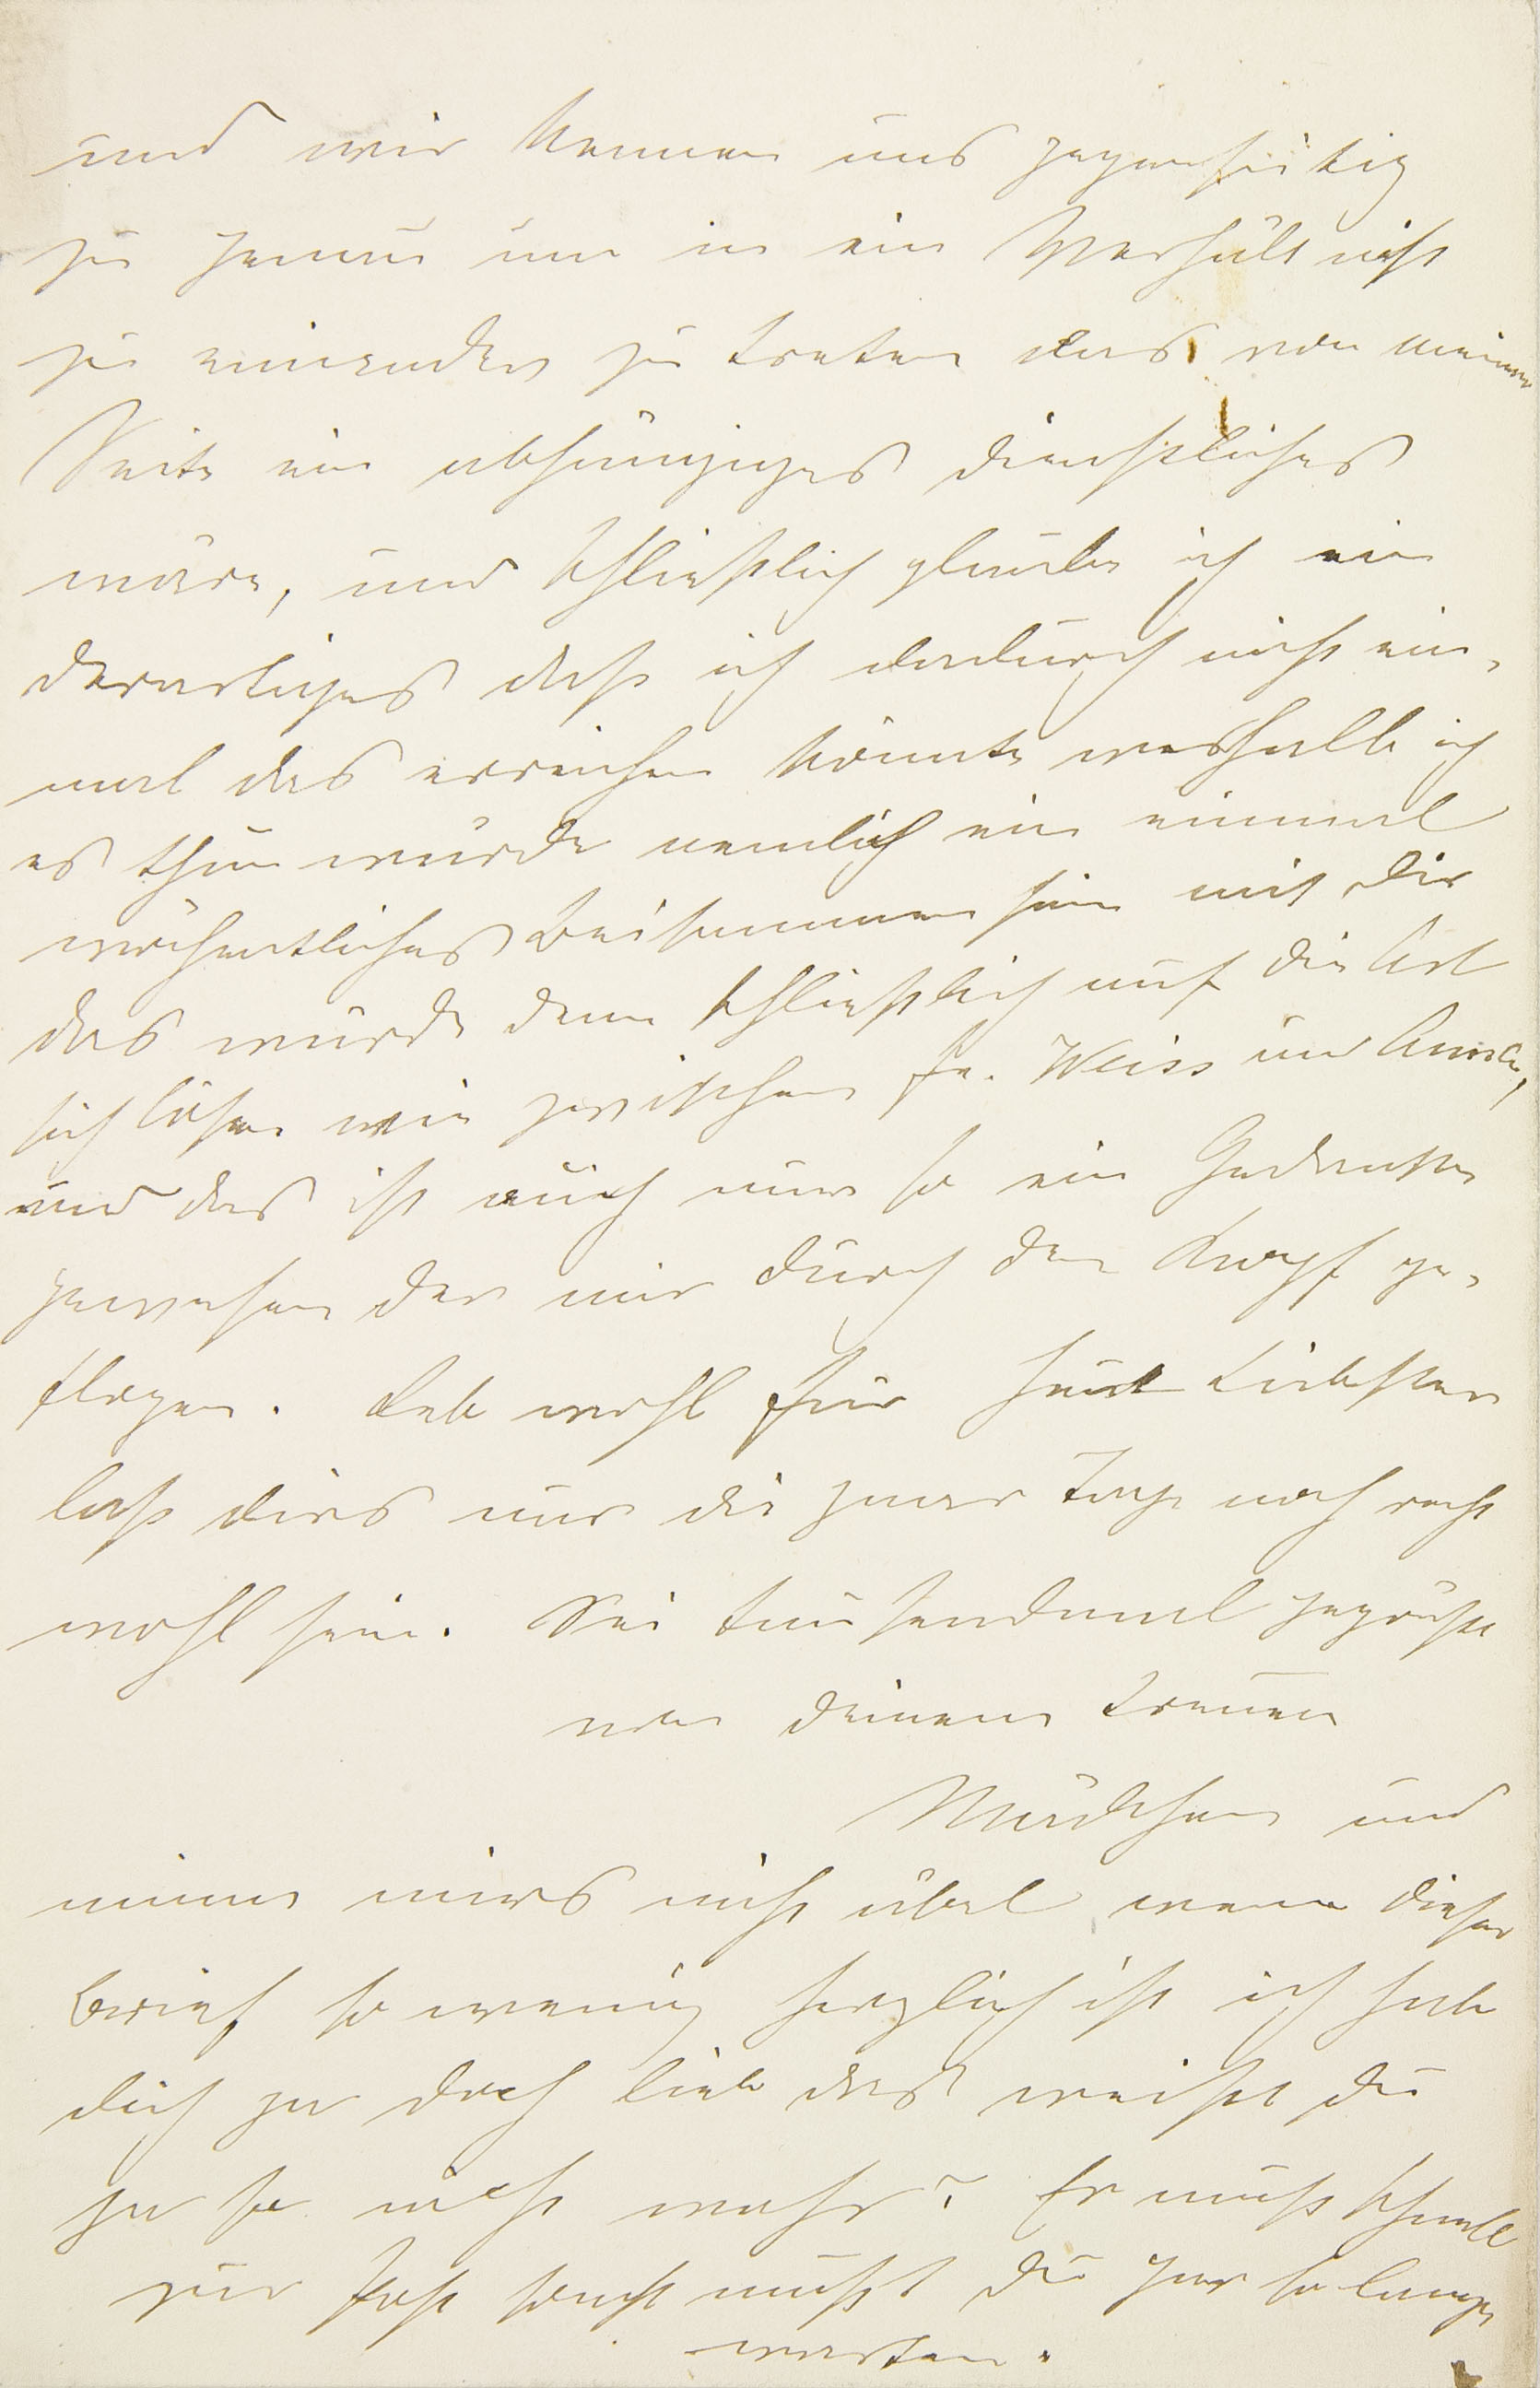 und wir kennen uns gegenseitig
zu genau um in ein Verhältniß
zu einander zu treten das von meiner
Seite ein abhängiges dienstliches
wäre, und schließlich glaube ich ein
derartiges daß ich dadurch nicht ein-
mal das erreichen könnte weshalb ich
es thun würde nemlich ein einmal
wöchentliches Beisammen sein mit Dir
das würde dann schließlich auf die Art
sich lösen wie zwischen Fr. Weiss und
und das ist auch nur so ein Gedanke
gewesen der mir durch den Kopf ge-
flogen. Leb wohl für heut Liebster
laß dirs nur die paar Tage noch recht
wohl sein. Sei tausendmal gegrüßt
von deinem treuen
Mädchen und
nimm mirs nicht übel wenn dieser
Brief so wenig herzlich ist ich habe
dich ja doch lieb das weißt du
ja so nicht wahr? Er muß schnell
zur Post sonst mußt du gar so lange
warten.